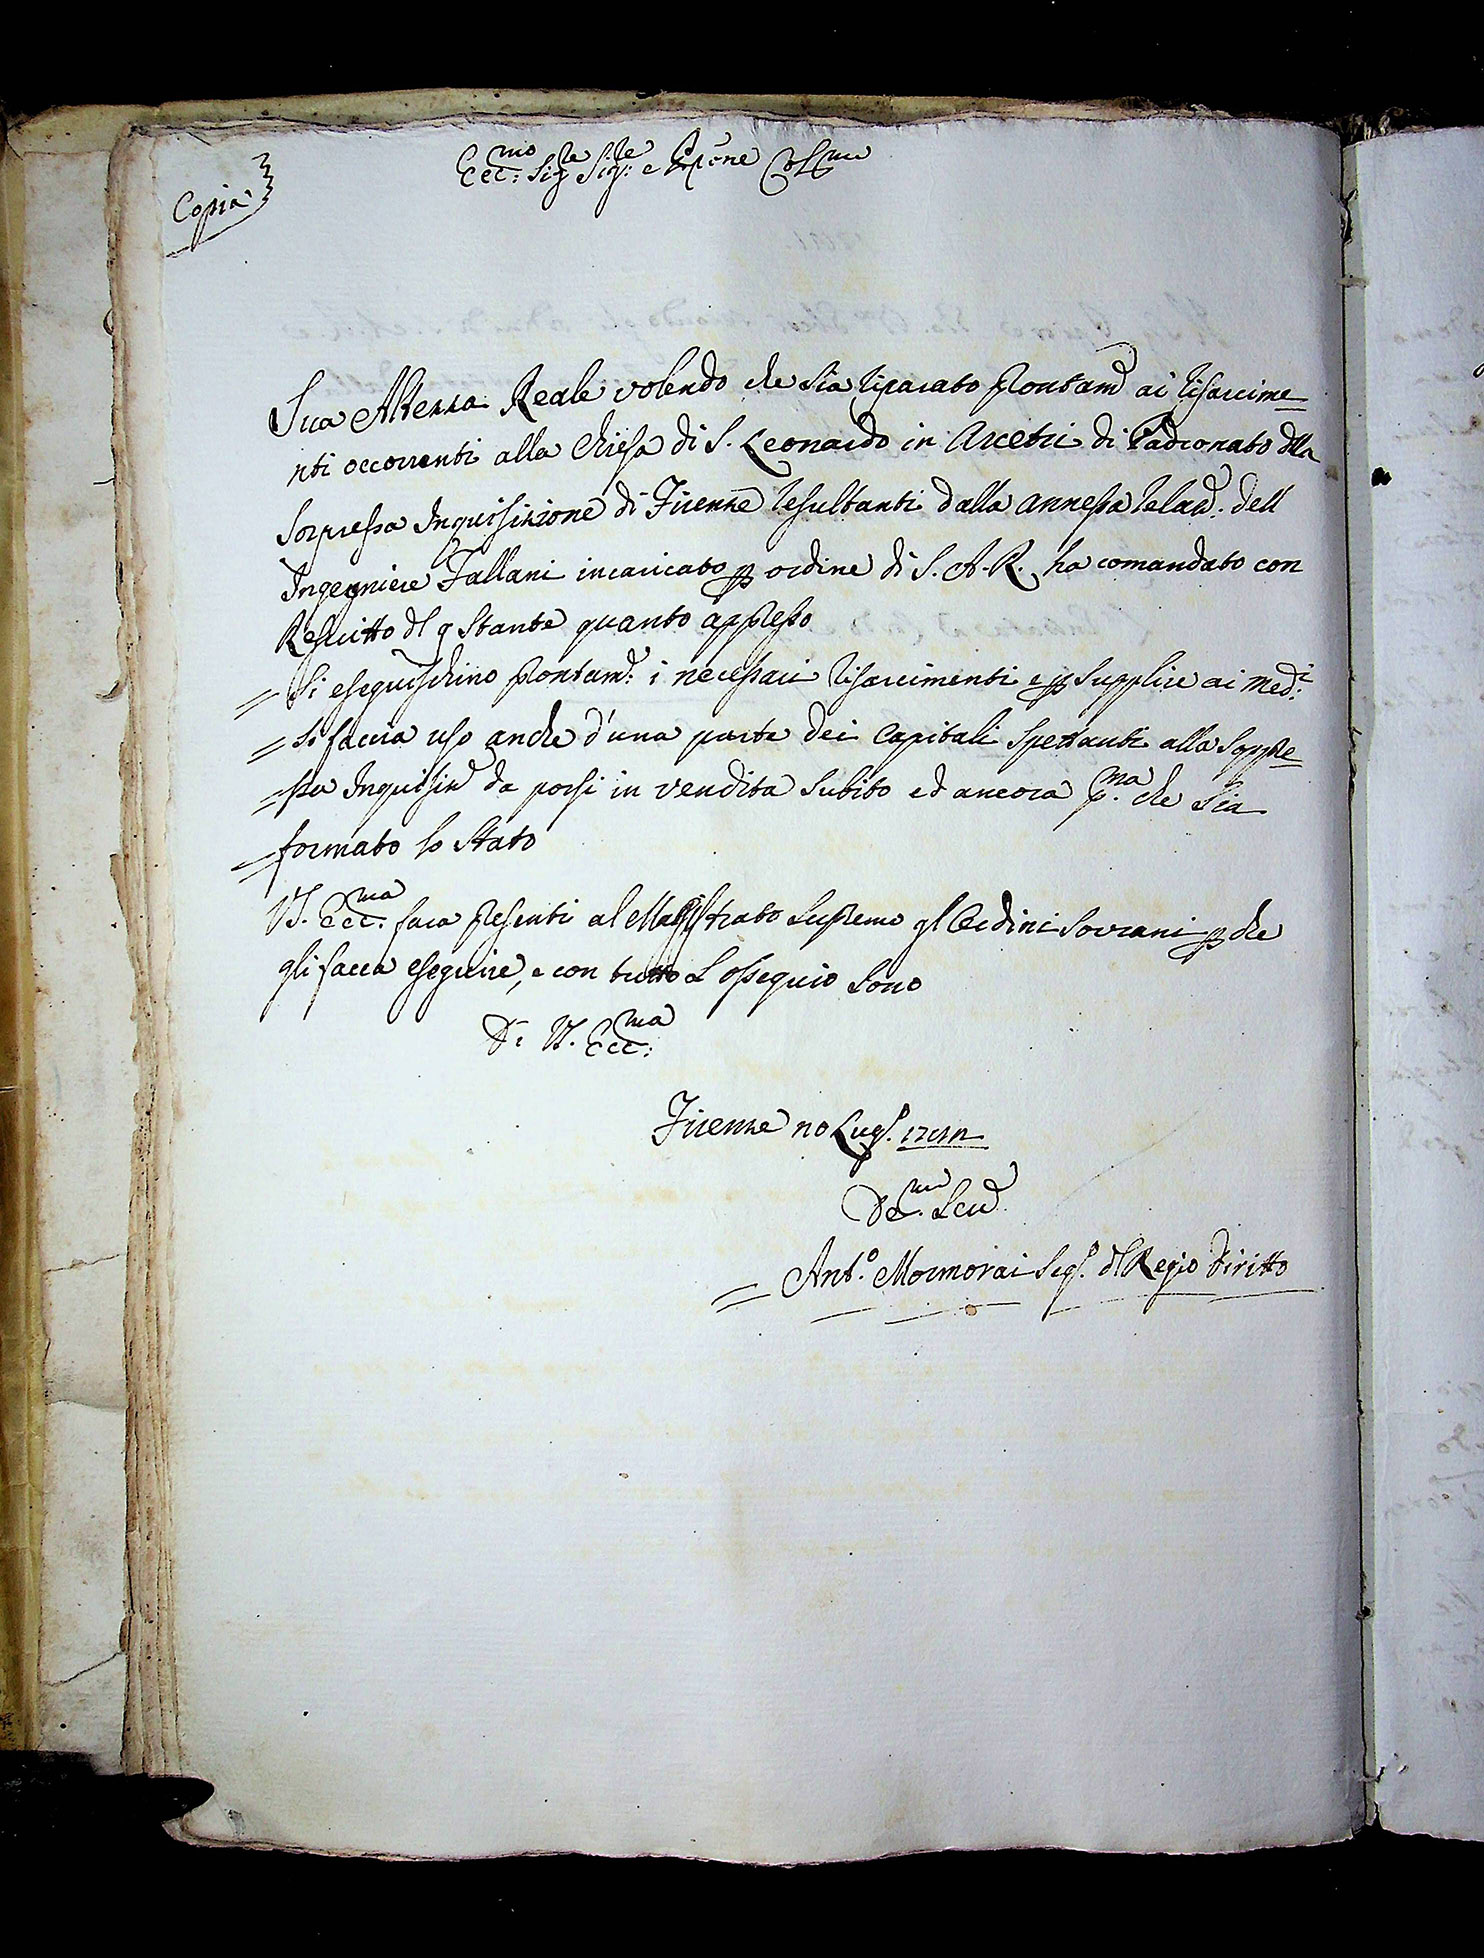 Copia
Ecc:mo Sig:re Sig:re e Pròne Col:mo
Sua Altezza Reale volendo che sia riparato prontam.e ai risarcime=
nti occorrenti alla Chiesa di S. Leonardo in Arcetri di Padronato dlla
soppressa Inquisizione di Firenze resultanti dalla annessa relaz.e dell
Ingegniere Fallani incaricato p ordine di S. A. R. ha comandato con
Rescritto dl 9 Stante quanto appresso
= Si eseguischino prontam.e i necessari risarcimenti e p supplire ai med:i
= si faccia uso anche d'una parte dei Capitali spettanti alla soppre=
= ssa Inquisiz.e da porsi in vendita subito ed ancora p.ma che sia
= formato lo Stato
V.S. Ecc:ma fara presenti al Magistrato Supremo gl Ordini Sovrani p che
gli facca eseguire, e con tutto L ossequio sono
Di V.S. Ecc:ma
Firenze Lug.o
De.mo Ser.e
= Ant.o Mormorai Seg.o dl Regio Diritto